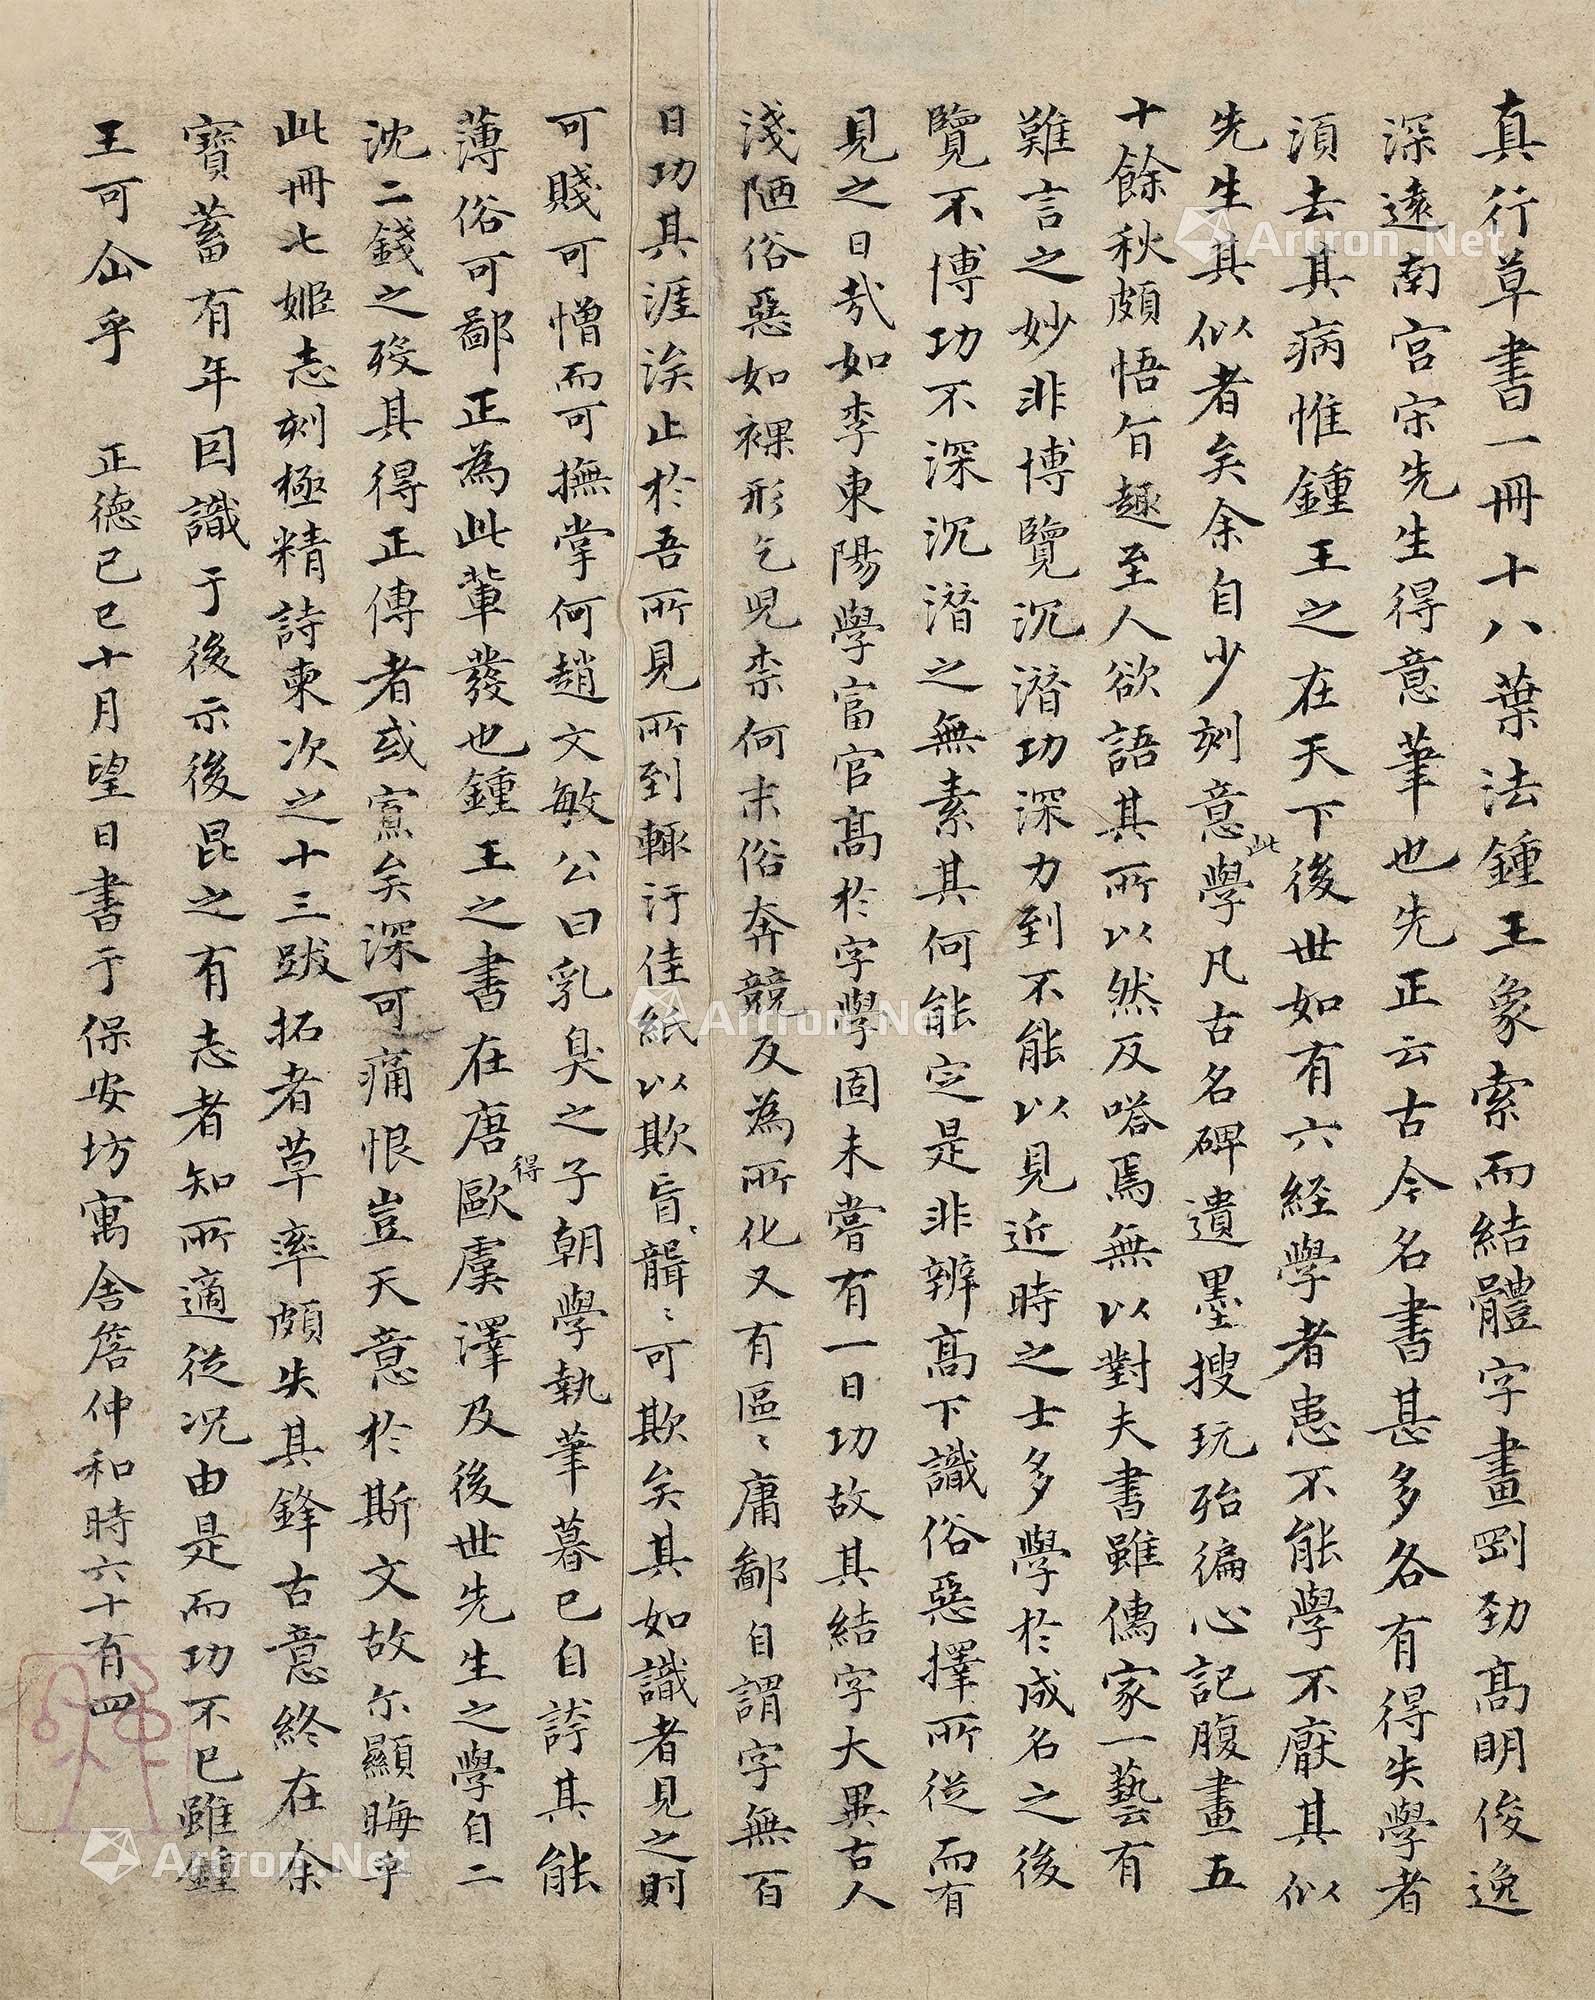 真行草書一冊十八葉法鍾王象索而結體字畫剛勁髙明俊逸
深遠南宮宋先生得意筆也先正云古今名書甚多各有得失學者
須去其病惟鍾王之在天下後世如有六経學者患不能學不厭其似
先生其似者矣余自少刻意此學凡古名碑遺墨搜玩殆徧心記腹畫五
十餘秋頗悟旨趣至人欲語其所以然反嗒焉無以對夫書雖儒家一藝有
難言之妙非博覽沉潛功深力到不能以見近時之士多學於成名之後
覽不博功不深沉潛之無素其何能定是非辨髙下識俗惡擇所從而有
見之日㢤如李東陽學富官髙於字學固未嘗有一日功故其結字大異古人
淺陋俗惡如裸形乞児柰何末俗奔競反為所化又有區〻庸鄙自謂字無百
日功其涯涘止於吾所見所到輙汙佳紙以欺盲〻聾〻可欺矣其如識者見之則
可賤可憎而可撫掌何趙文敏公曰乳臭之子朝學執筆暮已自誇其能
薄俗可鄙正為此輩發也鍾王之書在唐歐虞得澤及後世先生之學自二
沈二錢之歿其得正傳者或寡矣深可痛恨豈天意於斯文故尔顯晦乎
此冊七姬志刻極精詩柬次之十三跋拓者草率頗失其鋒古意終在余
寶蓄有年因識于後示後昆之有志者知所適從况由是而功不已雖鍾
王可企乎 正德己巳十月望日書于保安坊寓舍詹仲和時六十有四
Artron.Net
Artron.Net
Artron.Net